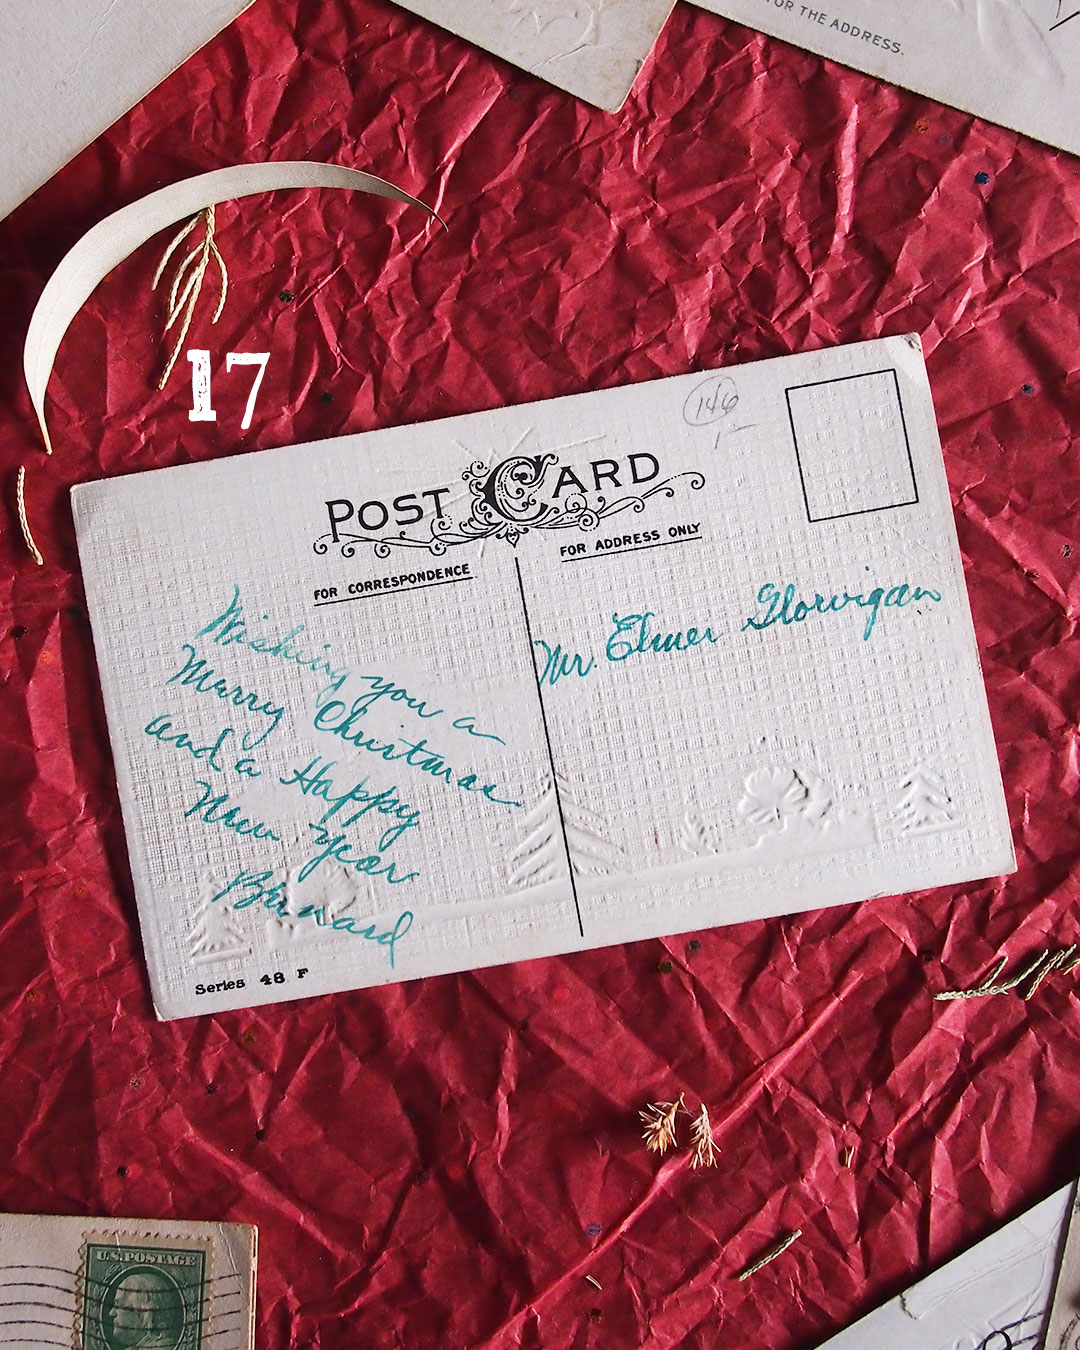 FOR THE ADDRESS.
17
146
1-
POST CARD
FOR CORRESPONDENCE
FOR ADDRESS ONLY
Wishing you a
Merry Christmas
and a Happy
New Year
Bernard
Mr. Elmer Glorvigan
Series 48 F
U.S. POSTAGE